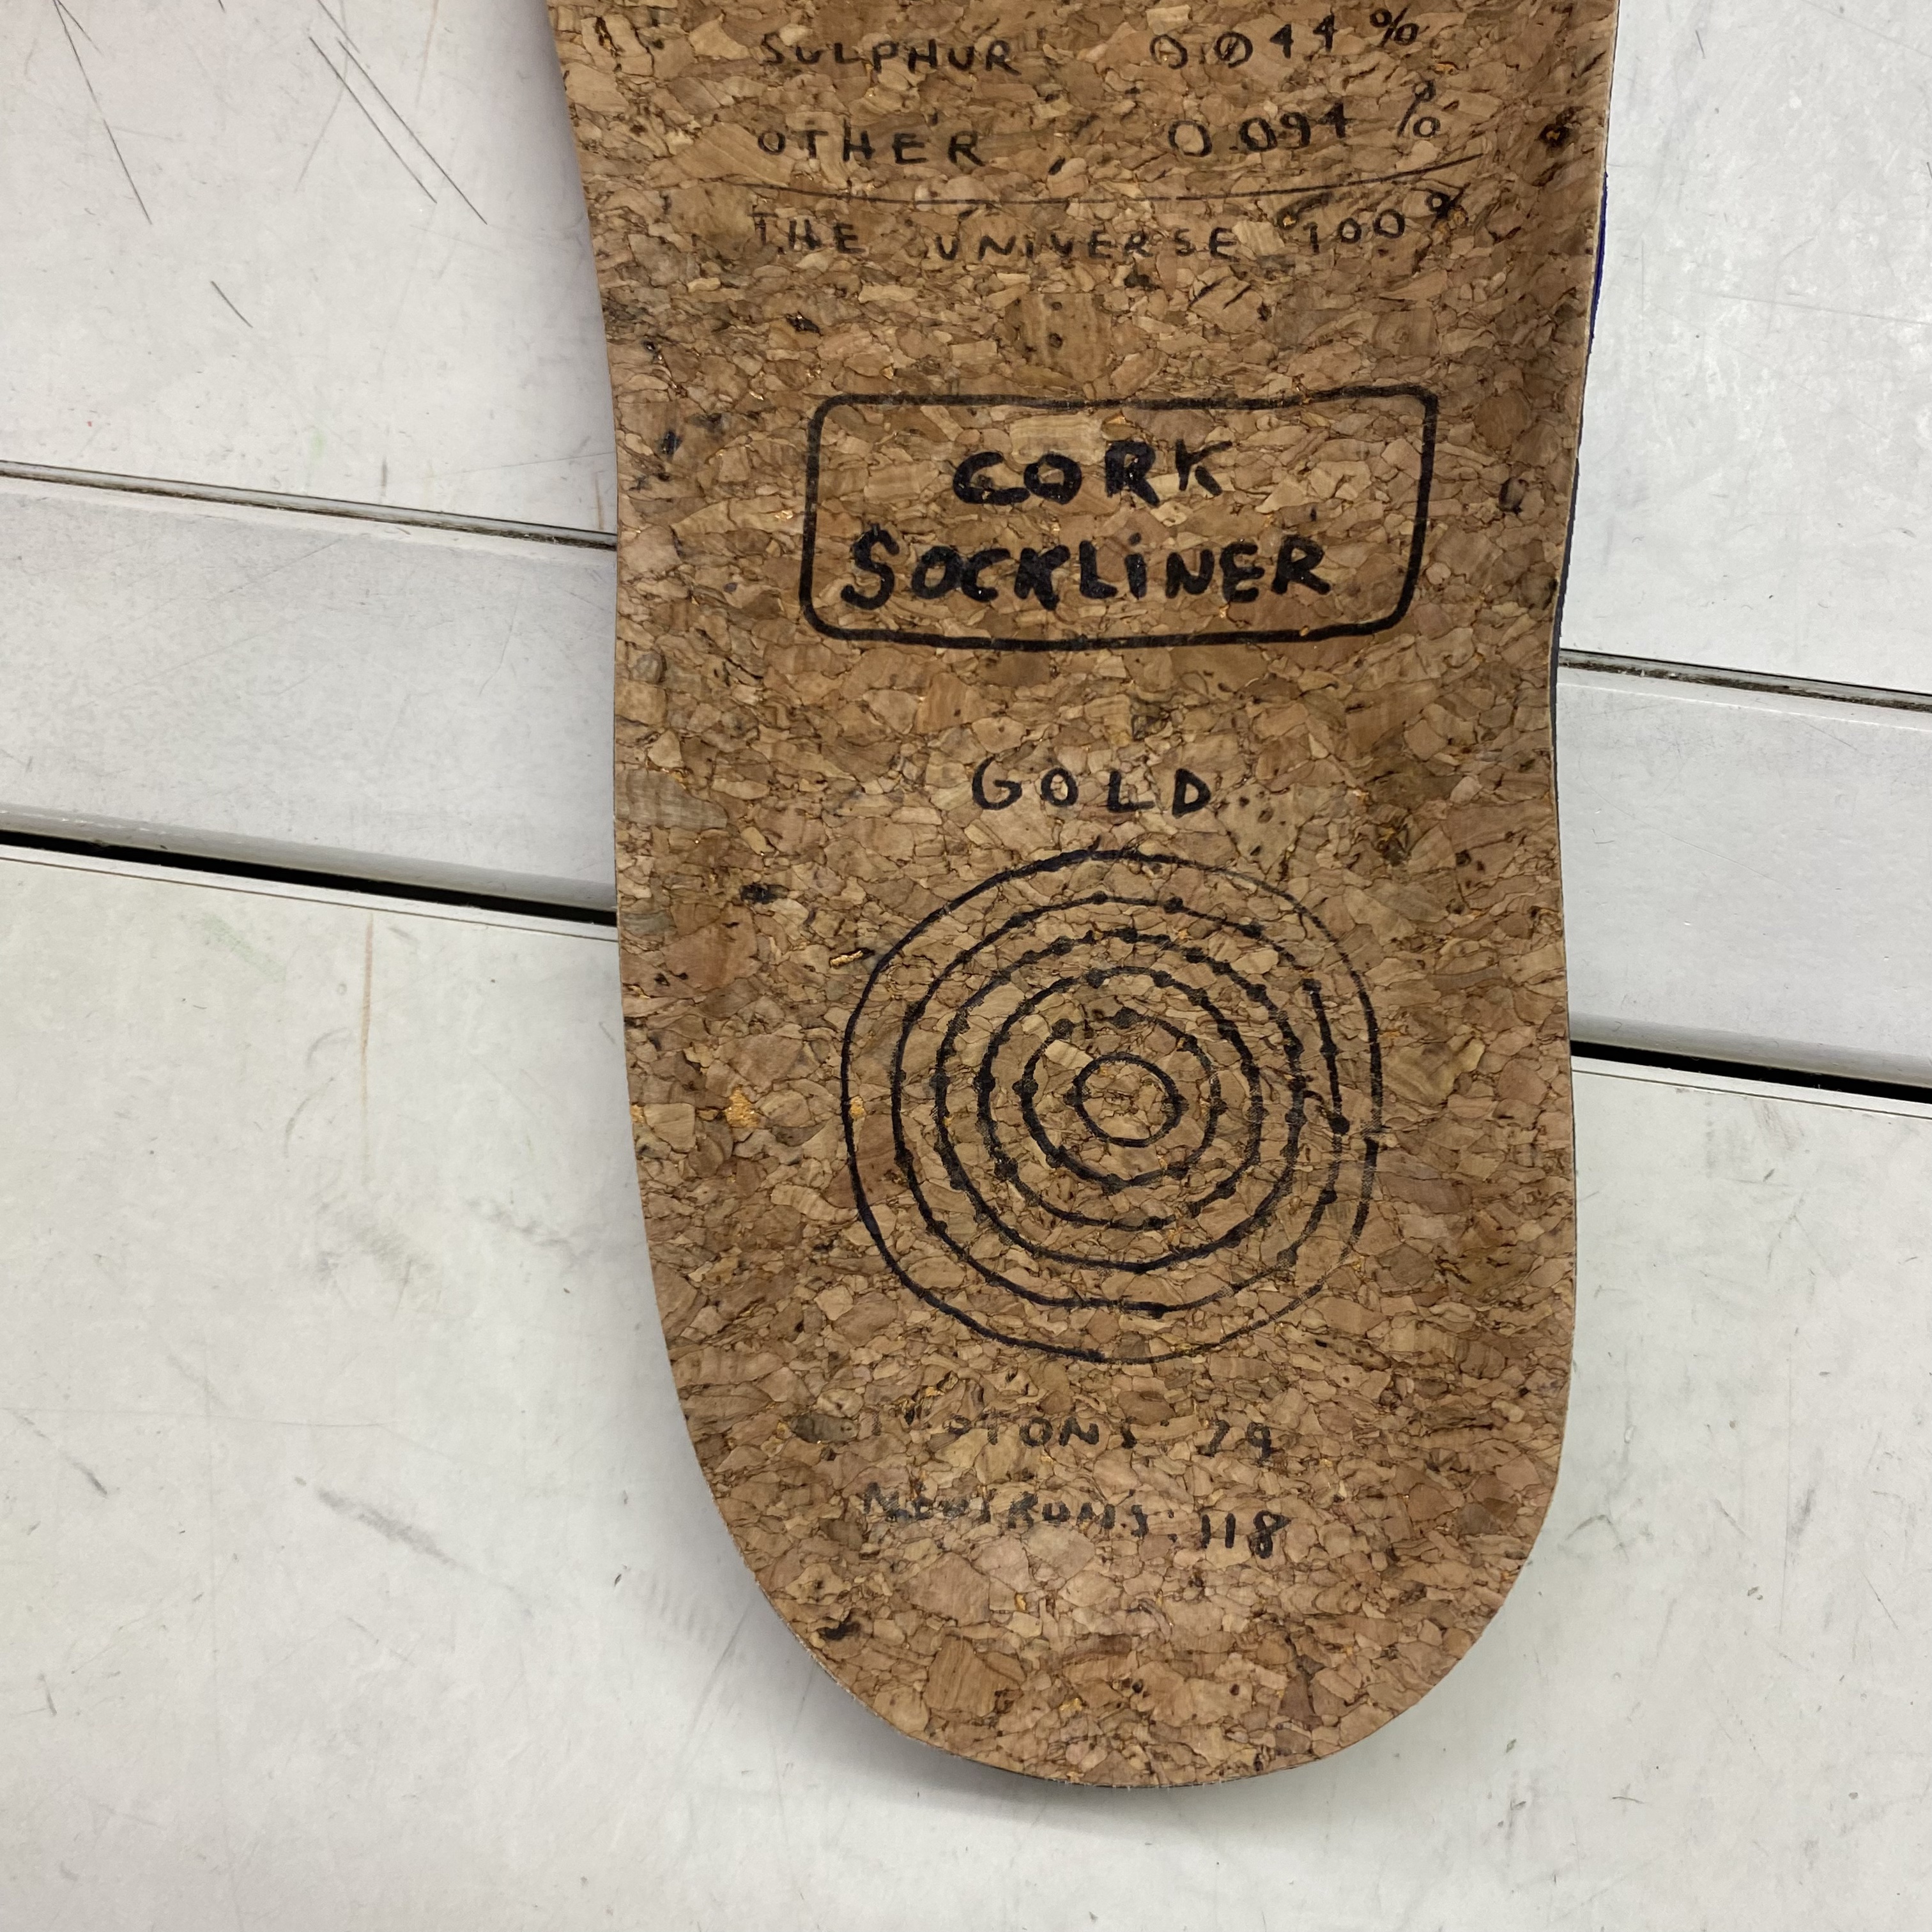 SULPHUR 0.044 %
OTHER 0.094 %
THE UNIVERSE 100%
CORK
SOCKLiNER
GOLD
PROTONS: 79
NEUTRONS: 118